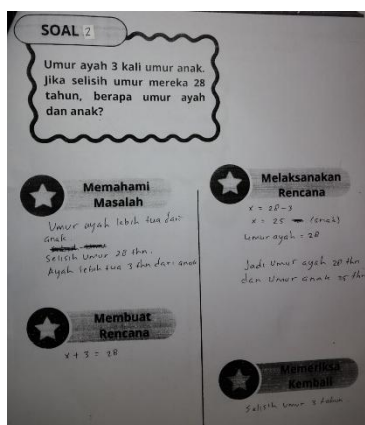 SOAL 2
Umur ayah 3 kali umur anak.
Jika selisih umur mereka 28
tahun, berapa umur ayah
dan anak?
Memahami
Masalah
Umur ayah lebih tua dari
anak
Selisih Umur 28 thn.
Ayah lebih tua 3 thn dari anak
Membuat
Rencana
x + 3 = 28
Melaksanakan
Rencana
x = 28 - 3
x = 25 (anak)
Umur ayah = 28
Jadi Umur ayah 28 thn
dan Umur anak 25 thn
Memeriksa
Kembali
Selisih Umur 3 tahun.